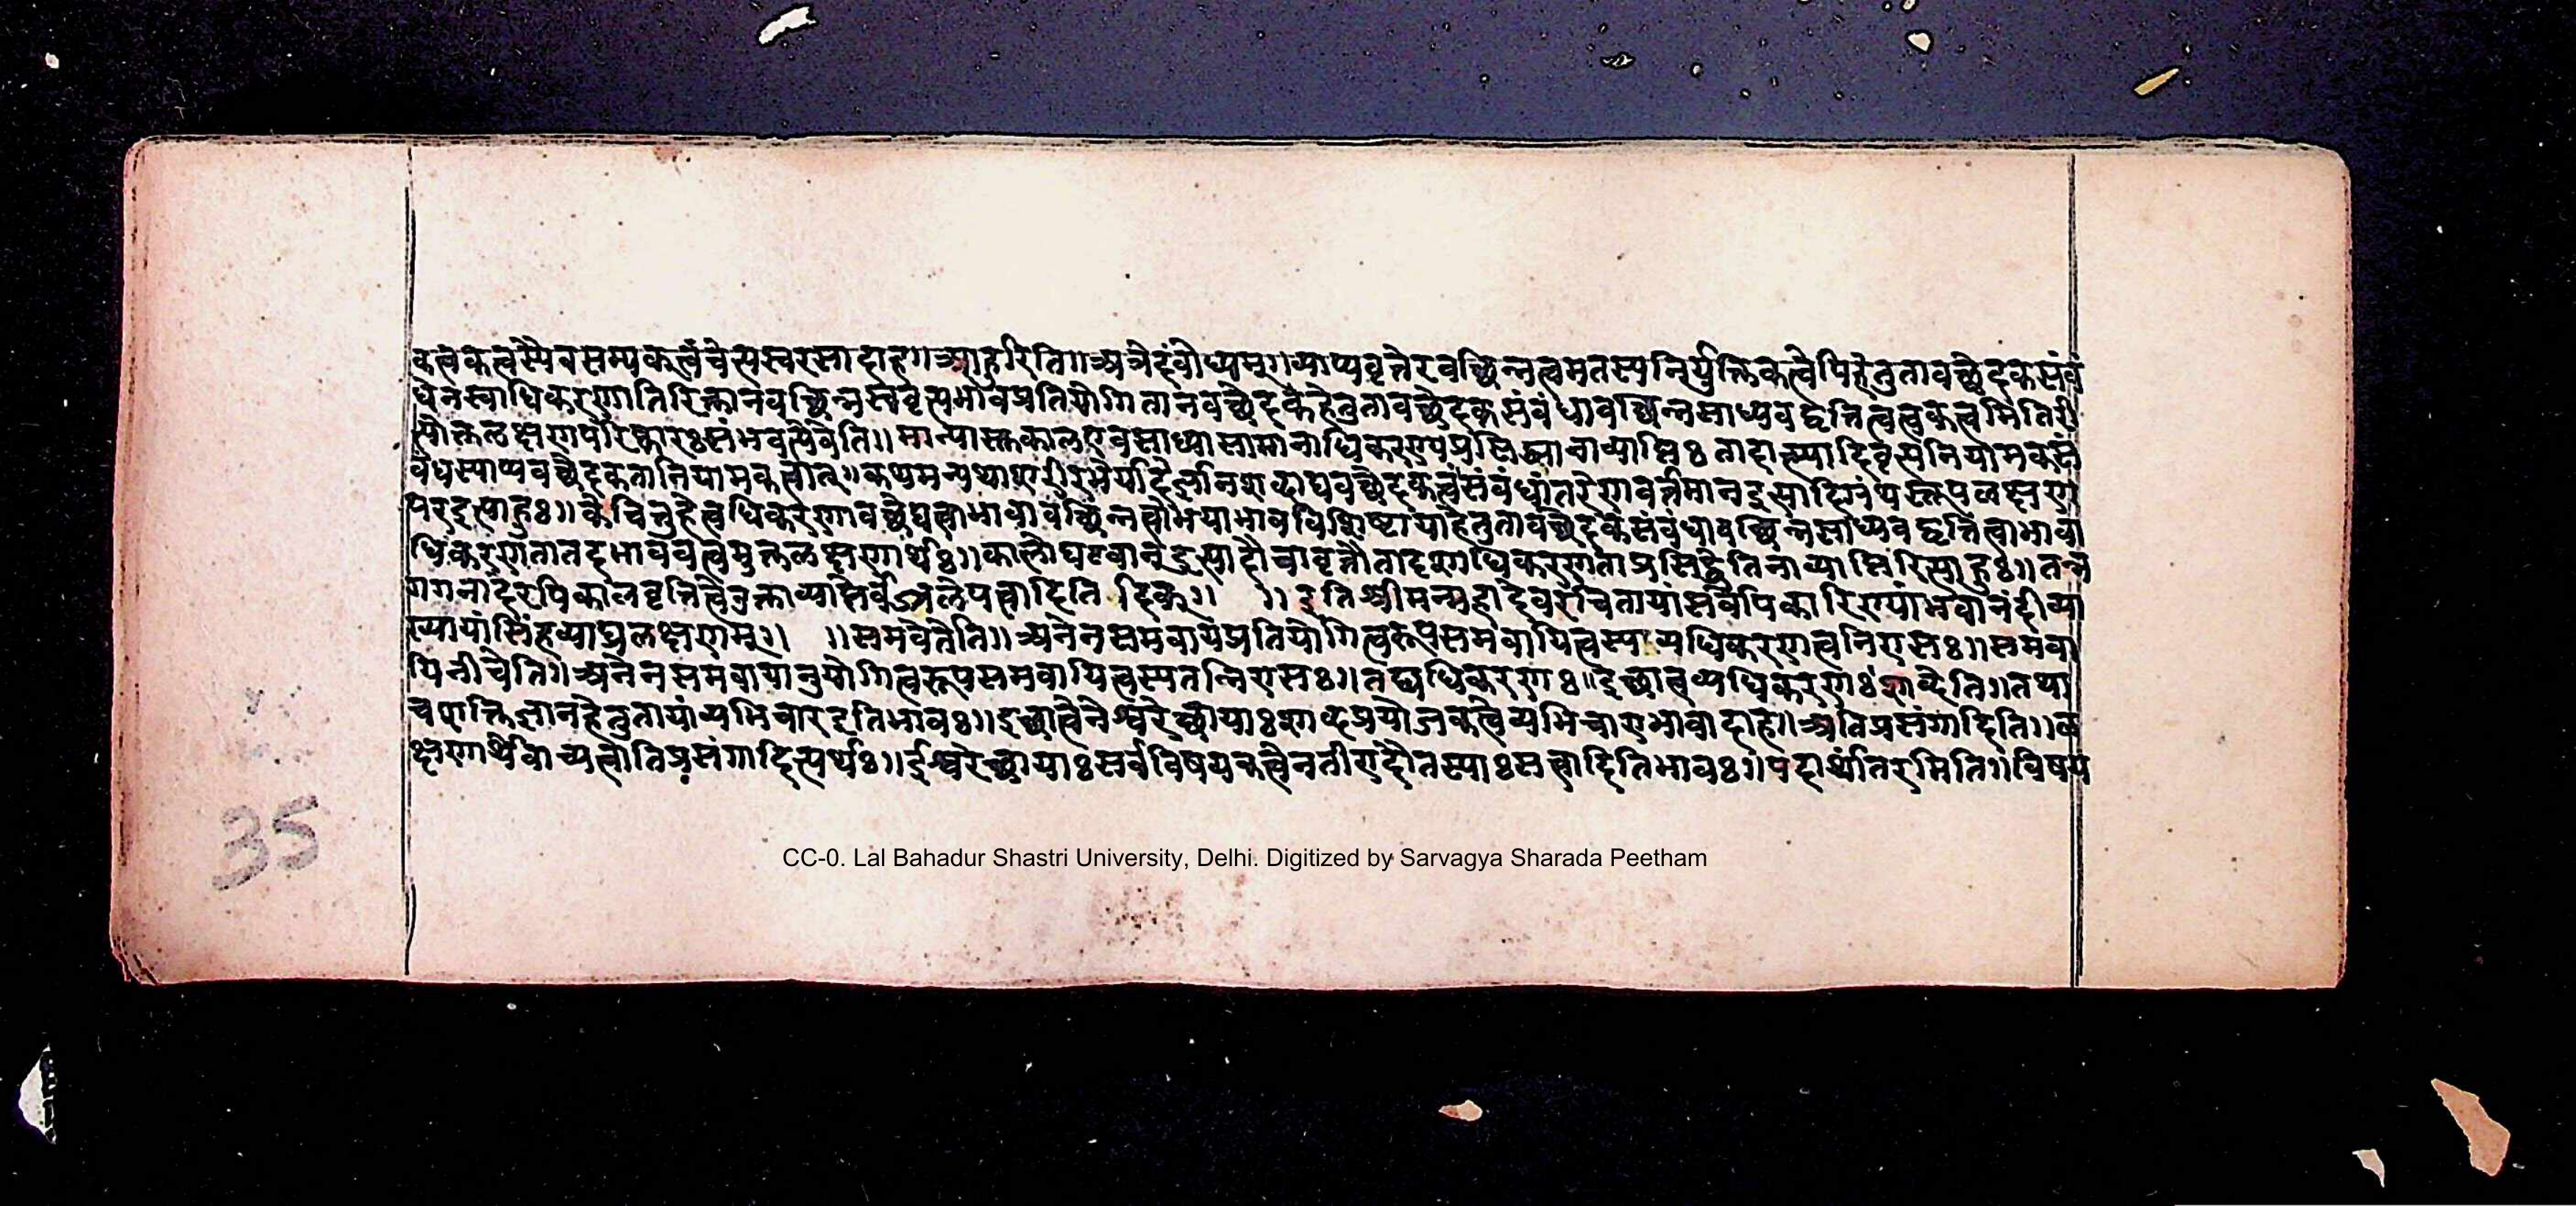 कत्वकत्वस्यैव सम्यकत्वं चेत्यस्वरसादाह॥ आहुरिति॥ अत्रेदं बोध्यम्॥ व्याप्यवृत्तेरवच्छिन्नत्वमतस्य निर्युक्तिकत्वेपि हेतुतावच्छेदकसंबं
धेन स्वाधिकरणातिरिक्तानवच्छिन्नस्ववृत्त्यभावप्रतियोगितानवच्छेदकहेतुतावच्छेदकसंबंधावच्छिन्नसाध्यवद्वृत्तित्वत्वकत्वमितिरी
त्योक्तलक्षणपरिष्कारः संभवत्येवेति॥ मान्यास्तु काल एव साध्यासामानाधिकरण्यप्रसिद्ध्या नाव्याप्तिः तादात्म्यादिवृत्त्यनियामकसं
बंधस्याप्यवच्छेदकतानियामकत्वात्॥ कथमन्यथा संबंधांतरेण वर्तमान उपलक्षण
परइत्याहुः॥ केचित्तु हेत्वधिकरणावच्छेद्यत्वाभावावच्छिन्नत्वोभयाभावविशिष्टा या हेतुतावच्छेदकसंबंधावच्छिन्नसाध्यवद्वृत्तित्वाभावा
धिकरणता तदभाववत्वमुक्तलक्षणार्थः॥ कालो घटवानइत्यादौ चावृत्तौ तादृशाधिकरणताप्रसिद्धेति नाव्याप्तिरित्याहुः॥ तन्न
गगनादेरपि कालवृत्तित्वे तुक्ताव्याप्तेर्वज्रलेपत्वादिति दिक्॥ ॥ इति श्रीमन्महादेवरचितायां सर्वोपकारिण्यां भवानंदीव्या
ख्यायां सिंहव्याघ्रलक्षणम्॥ ॥ समवेतेति॥ अनेन समवायप्रतियोगित्वरूपसमवायित्वस्य व्यधिकरणत्वनिरासः॥ समवा
यिनी चेति॥ अनेन समवायानुयोगित्वरूपसमवायित्वस्य तन्निरासः॥ तद्व्यधिकरणः॥ इच्छात्वव्यधिकरणः॥ शब्देति॥ तथा
च शक्तिज्ञानहेतुतायां व्यभिचार इतिभावः॥ इच्छात्वेनेश्वरेच्छायाः शाब्दप्रयोजकत्वे व्यभिचाराभावादाह॥ अतिप्रसंगादिति॥ ल
क्षणार्थे वाच्यत्वातिप्रसंगादित्यर्थः॥ ईश्वरेच्छायाः सर्वविषयकत्वेन तीरादौ तस्याः सत्वादितिभावः॥ पदार्थांतरमिति॥ विषय
35
CC-0. Lal Bahadur Shastri University, Delhi. Digitized by Sarvagya Sharada Peetham